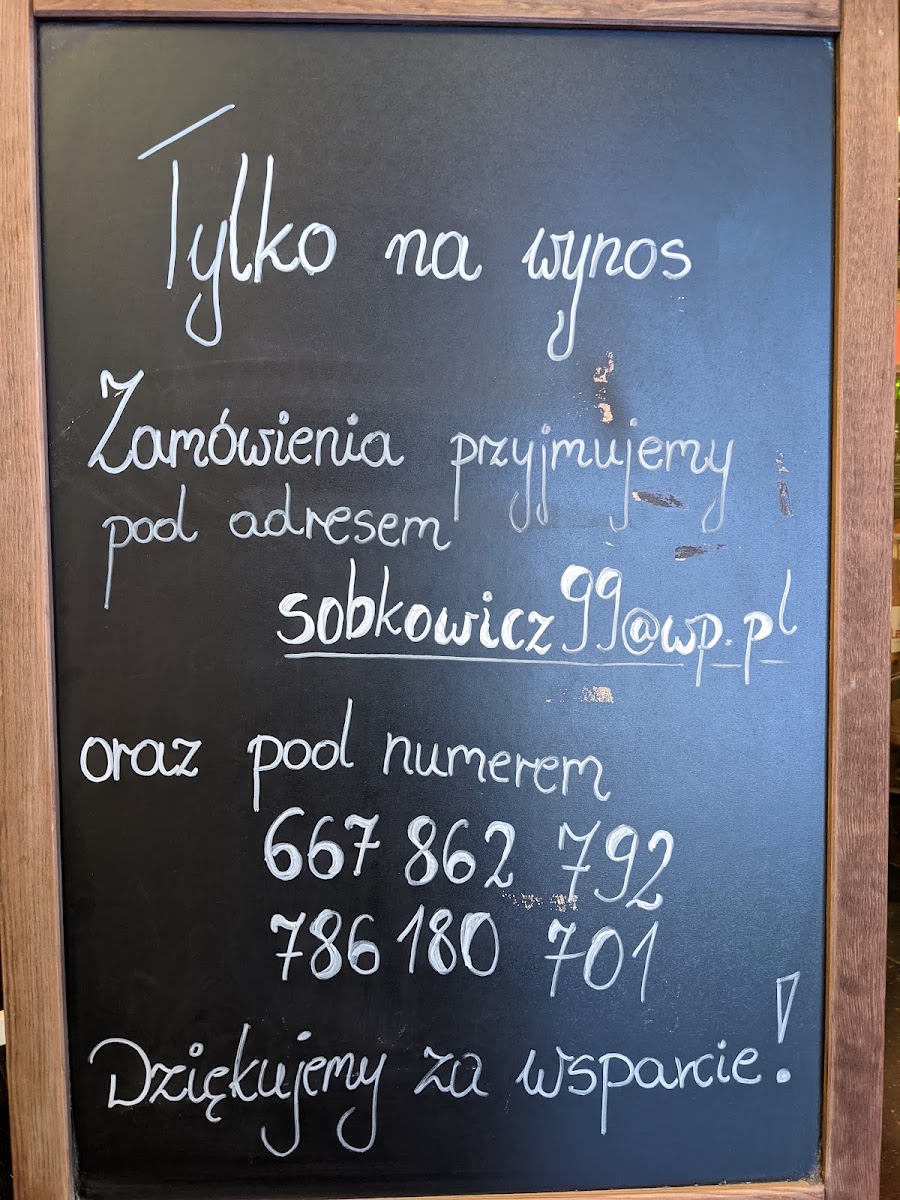 Tylko na wynos
Zamówienia przyjmujemy
pod adresem
sobkowicz99@wp.pl
oraz pod numerem
667 862 792
786 180 701
Dziękujemy za wsparcie!